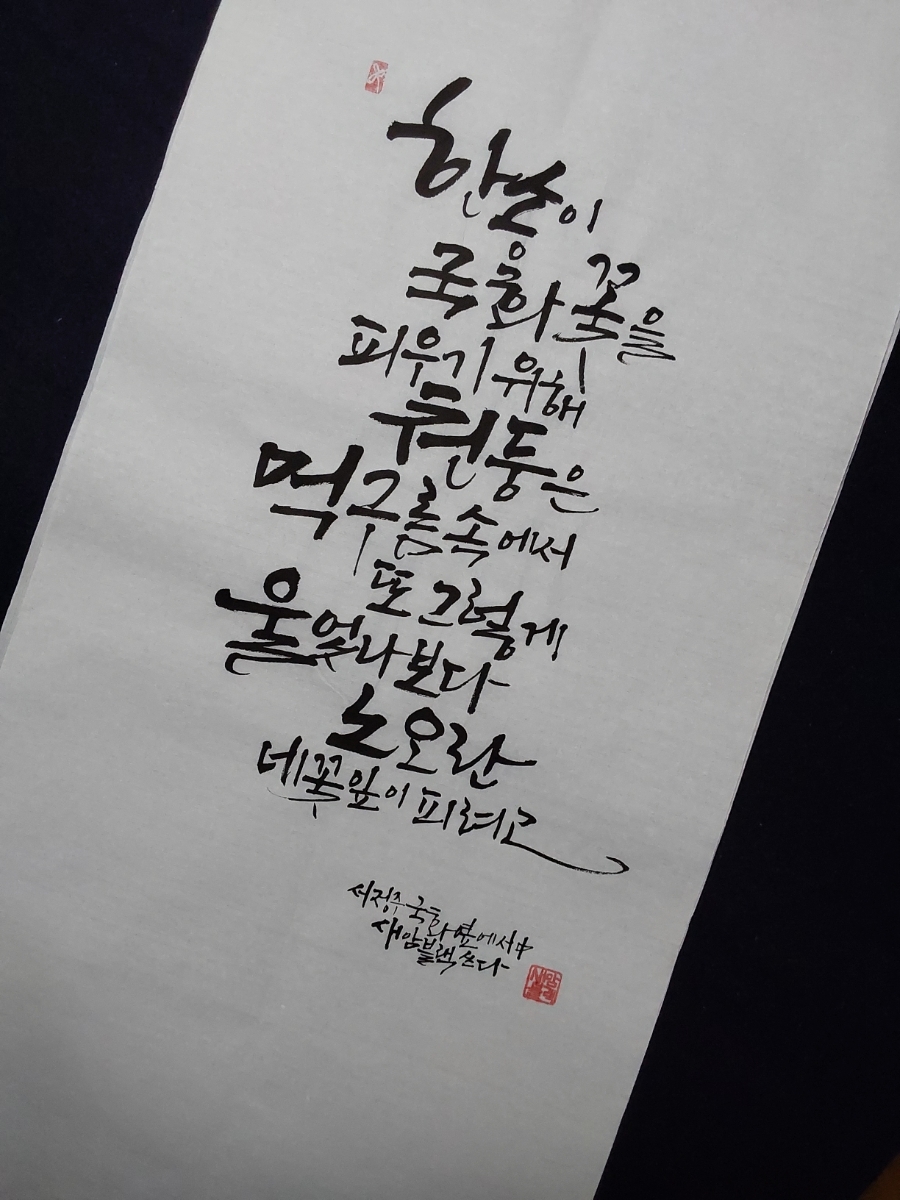 한송이
국화꽃을
피우기 위해
천둥은
먹구름속에서
또 그렇게
울었나보다
노오란
네 꽃잎이 피려고
서정주 국화옆에서 中
새암블랙 쓰다